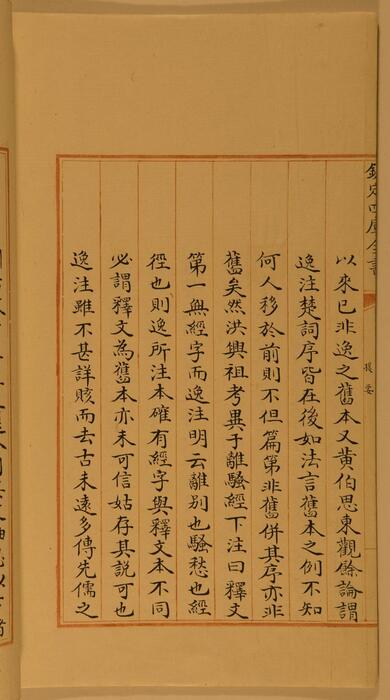 欽定四庫全書
提要
以來已非逸之舊本又黄伯思東觀餘論謂
逸注楚詞序皆在後如法言舊本之例不知
何人移於前則不但篇第非舊併其序亦非
舊矣然洪興祖考異于離騷經下注曰釋文
第一無經字而逸注明云離别也騷愁也經
徑也則逸所注本確有經字與釋文本不同
必謂釋文為舊本亦未可信姑存其說可也
逸注雖不甚詳賅而去古未遠多傳先儒之